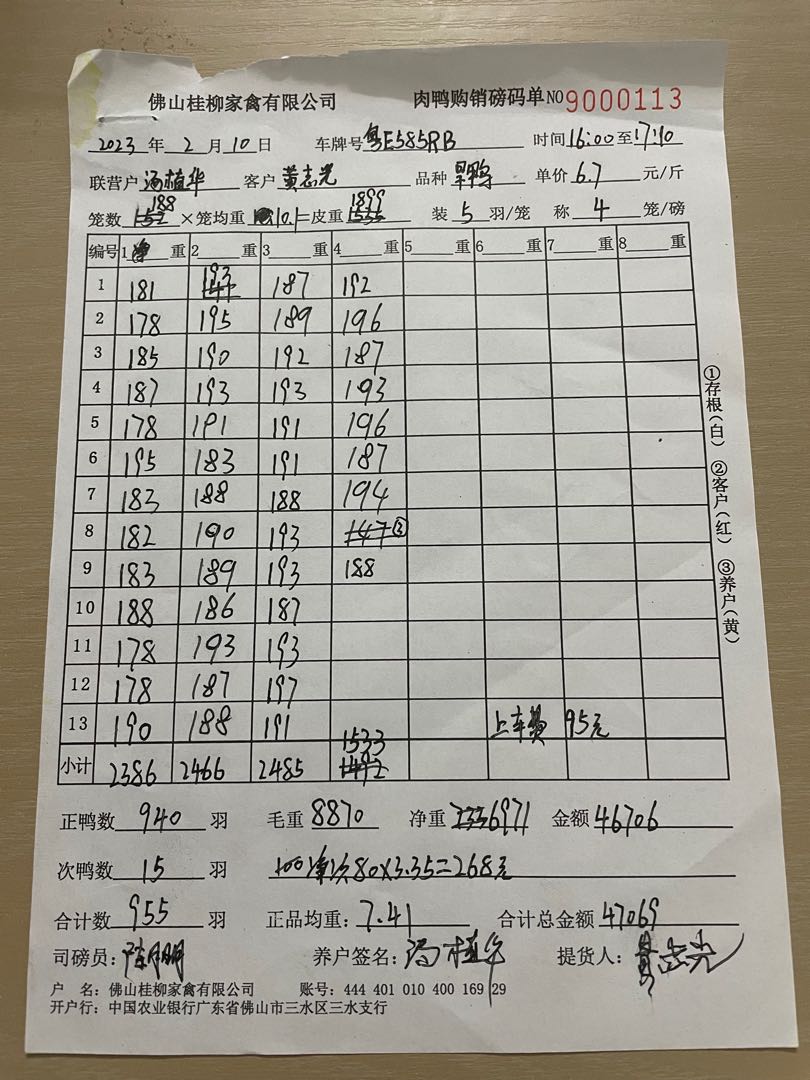 佛山桂柳家禽有限公司 肉鸭购销磅码单 NO 9000113
2023 年 2 月 10 日 车牌号 粤E585RB 时间 16:00 至 17:10
联营户 汤植华 客户 黄志光 品种 旱鸭 单价 6.7 元/斤
笼数 188 × 笼均重 10.1 = 皮重 1899 装 5 羽/笼 称 4 笼/磅
编号 1 净 重 2 重 3 重 4 重 5 重 6 重 7 重 8 重
1 181 193 187 192
2 178 195 189 196
3 185 190 192 187
4 187 193 193 193
5 178 191 191 196
6 195 183 191 187
7 183 188 188 194
8 182 190 193 147 ③
9 183 189 193 188
10 188 186 187
11 178 193 193
12 178 187 197
13 190 188 191 上车费 95元
小计 2386 2466 2485 1533
正鸭数 940 羽 毛重 8870 净重 6971 金额 46706
次鸭数 15 羽 净次80×3.35=268元
合计数 955 羽 正品均重: 7.41 合计总金额 47069
司磅员: 养户签名: 汤植华 提货人: 黄志光
户 名: 佛山桂柳家禽有限公司 账号: 444 401 010 400 169 29
开户行: 中国农业银行广东省佛山市三水区三水支行
①存根(白) ②客户(红) ③养户(黄)